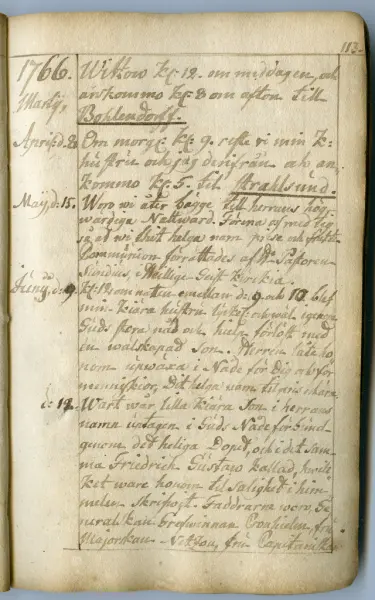 113.
1766. Wittow Kl: 12. om middagen, och
Martij, ars kommo Kl: 8 om afton till
Bohlendorff.
April: d. 8. Om morge: Kl: 9. reste vi min K:
hustru och jag derifrån och an
kommo Kl: 5. til Strahlsund.
Maij, d: 15. Woro wi åter bägge till herrans hög
wärdiga Nattward.
så at wi thet helga nam
Communion förrättades af Hr Pastoren
i Hellige-Geist Kirckia.
Junij, d: 9. Kl: 12 om natten emellan d: 9 och 10 blef
min Kiära hustru lyckel. och wäl igenom
Guds stora nåd och hielp förlöst med
en wälskapad Son. Herren låte ho
nom upwäxa i Nåde för Dig och för
menniskior, Dit helga namn til äro
d: 12. Wart wår lilla Kiära Son i herrans
namn uptagen i Guds Nåde förbund
genom det heliga Dopet, och i det sam
ma Friedrich Gustaf kallad, hwil
ket ware honom til Salighet i him
melen Faddrarna woro, Ge
neralskan Grefwinnan fru
Majorskan fru Capitainskan